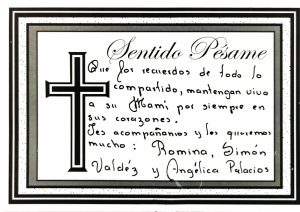 Sentido Pésame
Que los recuerdos de todo lo
compartido, mantengan viva
a su Mami por siempre en
sus corazones.
Les acompañamos y les queremos
mucho: Romina, Simón
Valdéz y Angélica Palacios